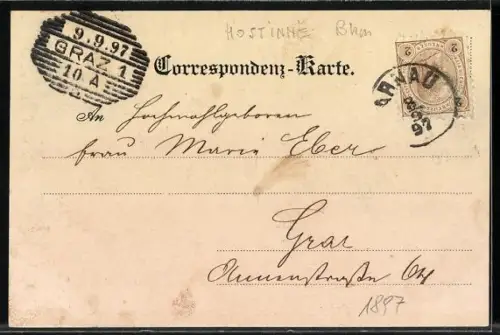 HOSTINNÉ Bhm
9.9.97
GRAZ 1
10 A
Correspondenz-Karte.
2 2
ARNAU
97
An Hochwohlgeboren
Frau Marie Eber
Graz
Annenstraße
1897